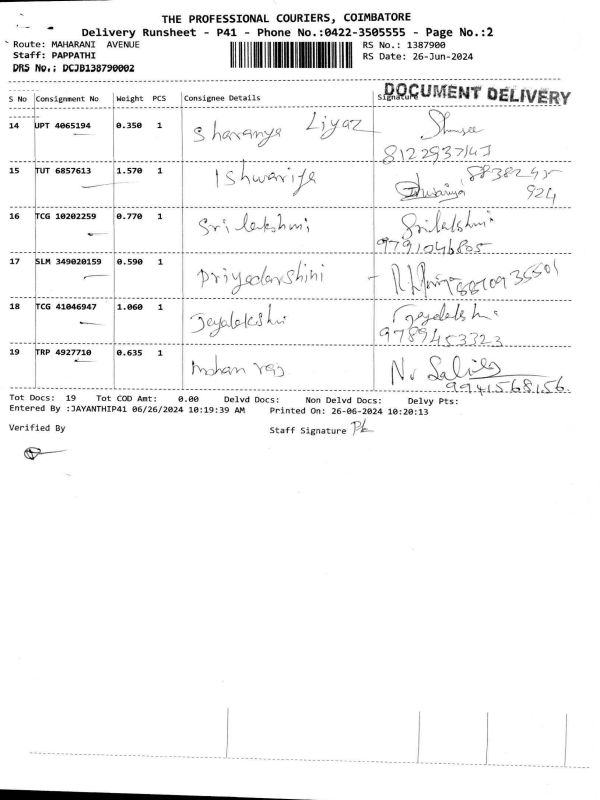 THE PROFESSIONAL COURIERS, COIMBATORE
Delivery Runsheet - P41 - Phone No.:0422-3505555 - Page No.:2
Route: MAHARANI AVENUE RS No.: 1387900
Staff: PAPPATHI RS Date: 26-Jun-2024
DRS No.: DCJB138790002
DOCUMENT DELIVERY
S No Consignment No Weight PCS Consignee Details Signature
14 UPT 4065194 0.350 1 Sharanya Liyaz
15 TUT 6857613 1.570 1 Ishwariya 8838245
924
16 TCG 10202259 0.770 1 Sri lakshmi Srilakshmi
9791046805
17 SLM 349020159 0.590 1 Priyadarshini
18 TCG 41046947 1.060 1 Jeyalakshi
9789453323
19 TRP 4927710 0.635 1 mohan raj
9941568156
Tot Docs: 19 Tot COD Amt: 0.00 Delvd Docs: Non Delvd Docs: Delvy Pts:
Entered By :JAYANTHIP41 06/26/2024 10:19:39 AM Printed On: 26-06-2024 10:20:13
Verified By Staff Signature